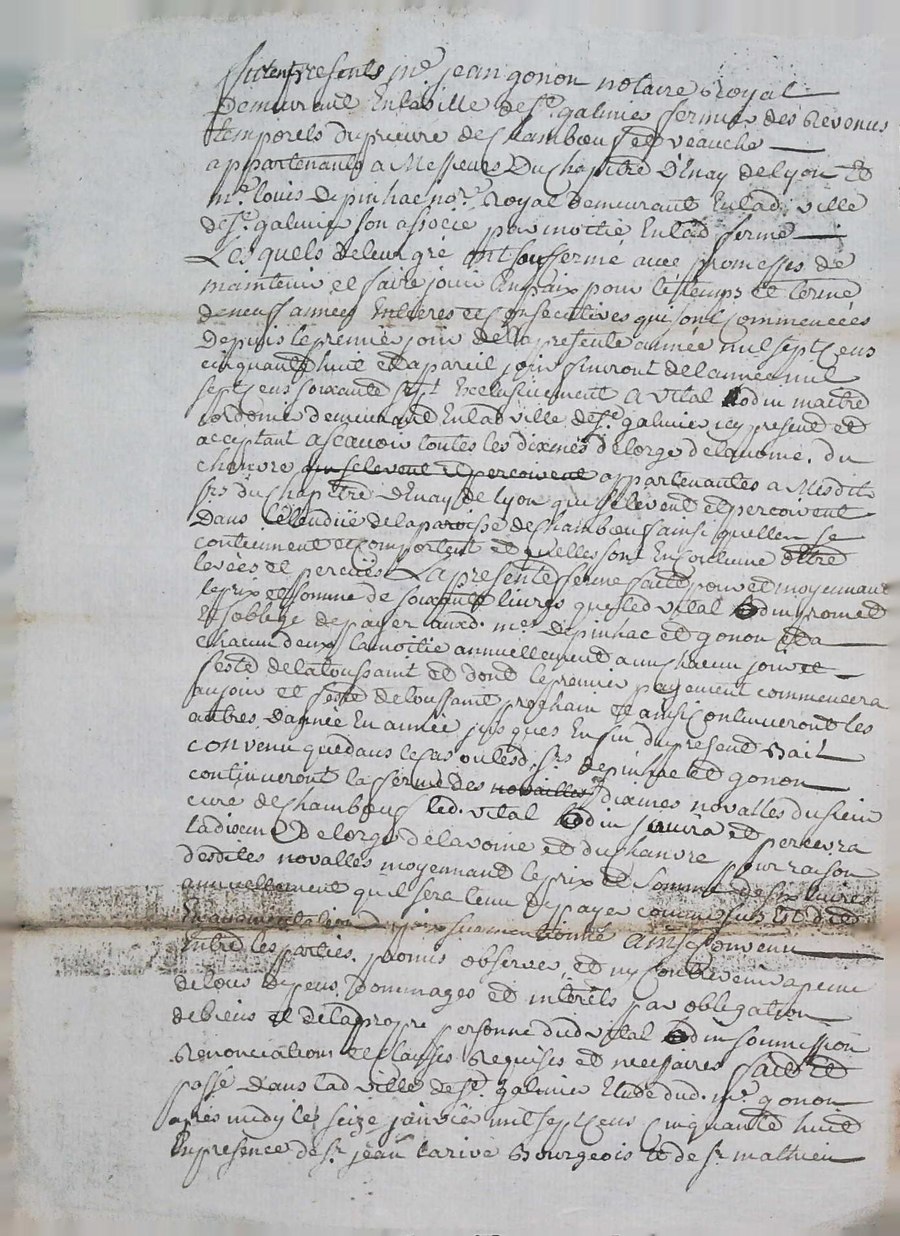 furent presents me. jean gonon notaire Royal
Demeurant En la ville de st. galmier fermier des Revenus
temporels du prieure de Chambœuf et veauche
appartenants a Messieurs Du Chapitre D'Enay de lyon Et
me. louis Depinhac nore. Royal demeurant En lad. ville
de st. galmier son associé par moitié En lad ferme
Lesquels de leur gré ont sousfermé avec promesses de
maintenir et faire jouir En paix pour le temps et terme
de neuf années Entieres et Consecutives qui sont commencées
depuis le premier jour de la presente année mil sept Cens
cinquante huit et a pareil jour finiront de l'année mil
sept Cens soixante sept Exclusivement a vital odin maitre
cordonnier demeurant En lad ville de st. galmier icy present et
acceptant a scavoir toutes les dixmes de l'orge de lavoine, du
chanvre qui se levent et percoivent appartenantes a Mesdits
srs du Chapitre d'Enay de lyon qui se levent et percoivent
Dans l'etendüe de la paroisse de Chambœuf ainsi quelles se
contiennent et Comportent et quelles sont En Coutume d'etre
levées et percües La presente ferme faite pour et moyennant
le prix et somme de soixante livres que led vital odin promet
Et soblige de payer auxd. mes. Depinhac et gonon et a
chacun deux la moitié annuellement a un chacun jour et
feste de la toussaint et dont le premier payement commencera
au jour et feste de toussaint prochain et ainsi Continueront les
autres d'année En année jusques En fin du present Bail
convenu que dans le cas ou lesd. srs. depinhac et gonon
continueront la ferme des novailles dixmes novalles du sieur
curé de Chambœuf led. vital odin jouira et percevra
la dixme De l'orge de lavoine et du Chanvre pour raison
desdites novalles moyennant le prix et somme de six livres
annuellement quil sera tenu de payer comme sus Est dit
En augmentation du prix susmentionné ainsi Convenu
Entre les parties, promis observer, et ny Contrevenir a peine
de tous depens, Dommages et interêts par obligation
de biens et de la propre personne dud vital odin soumission
Renonciations et Clauses Requises et necessaires fait Et
passé dans lad ville de st. galmier Etude dud. me. gonon
aprés midy le seize janvier mil sept Cens Cinquante huit
En presence de sr. jean larive Bourgeois Et de sr. mathieu